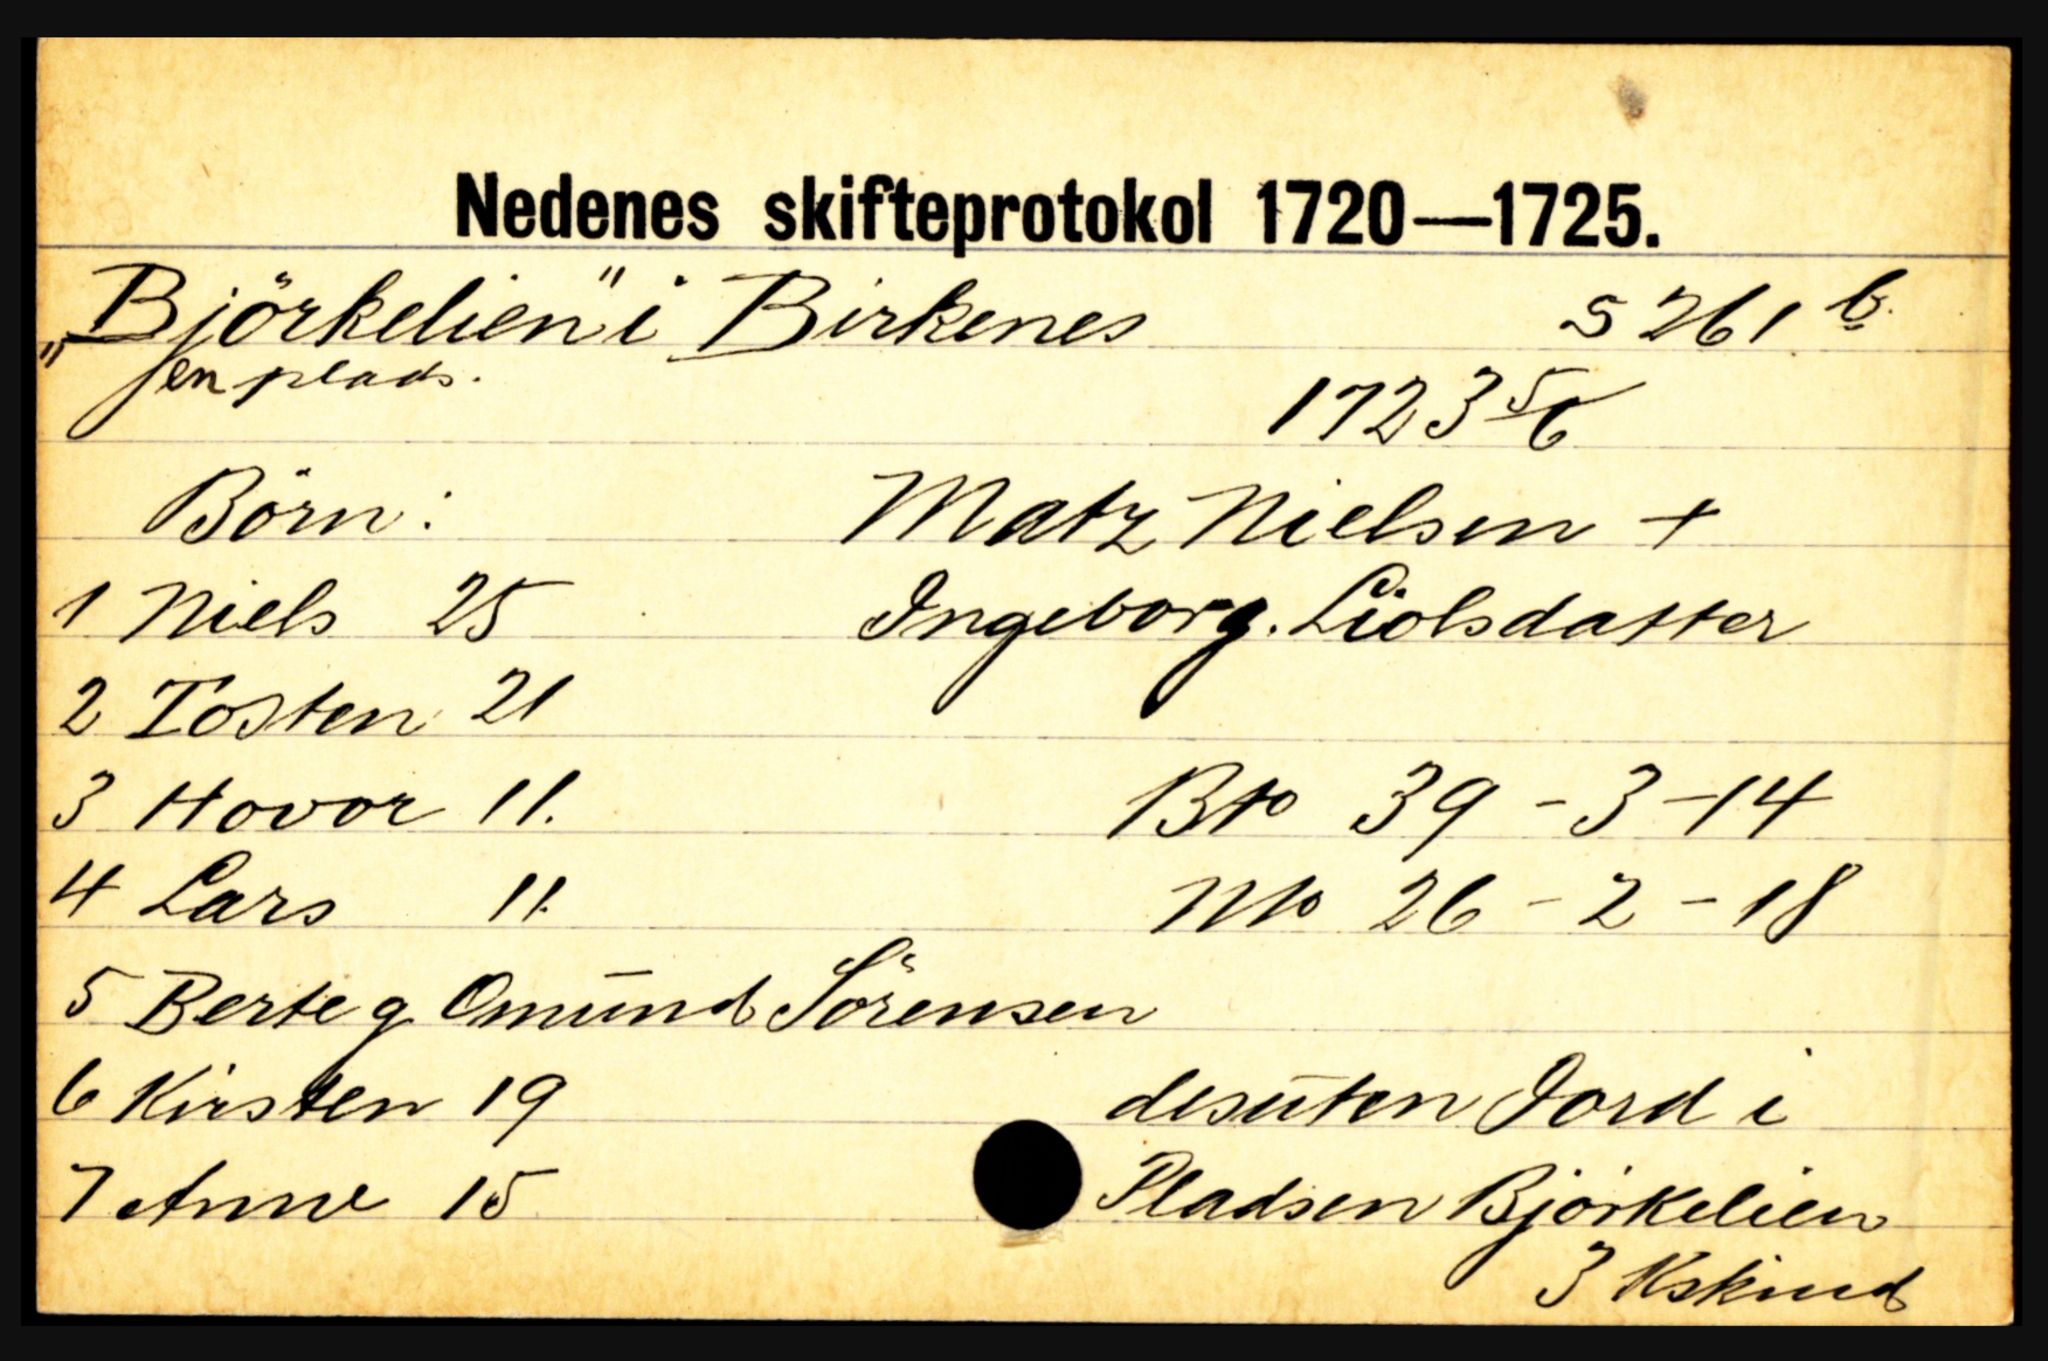 Nedenes skifteprotokol 1720—1725.
"Björkelien" i Birkenes S 261 b.
en plads.
1723 5/6
Börn: Matz Nielsen +
1 Niels 25 Ingeborg. Liolsdatter
2 Tosten 21
3 Hovor 11. Bto 39 - 3 - 14
4 Lars 11. Nto 26 - 2 - 18
5 Berte g Omund Sörensen
6 Kirsten 19 desuten Jord i
7 Anne 15 Pladsen Björkelien
3 Kskind